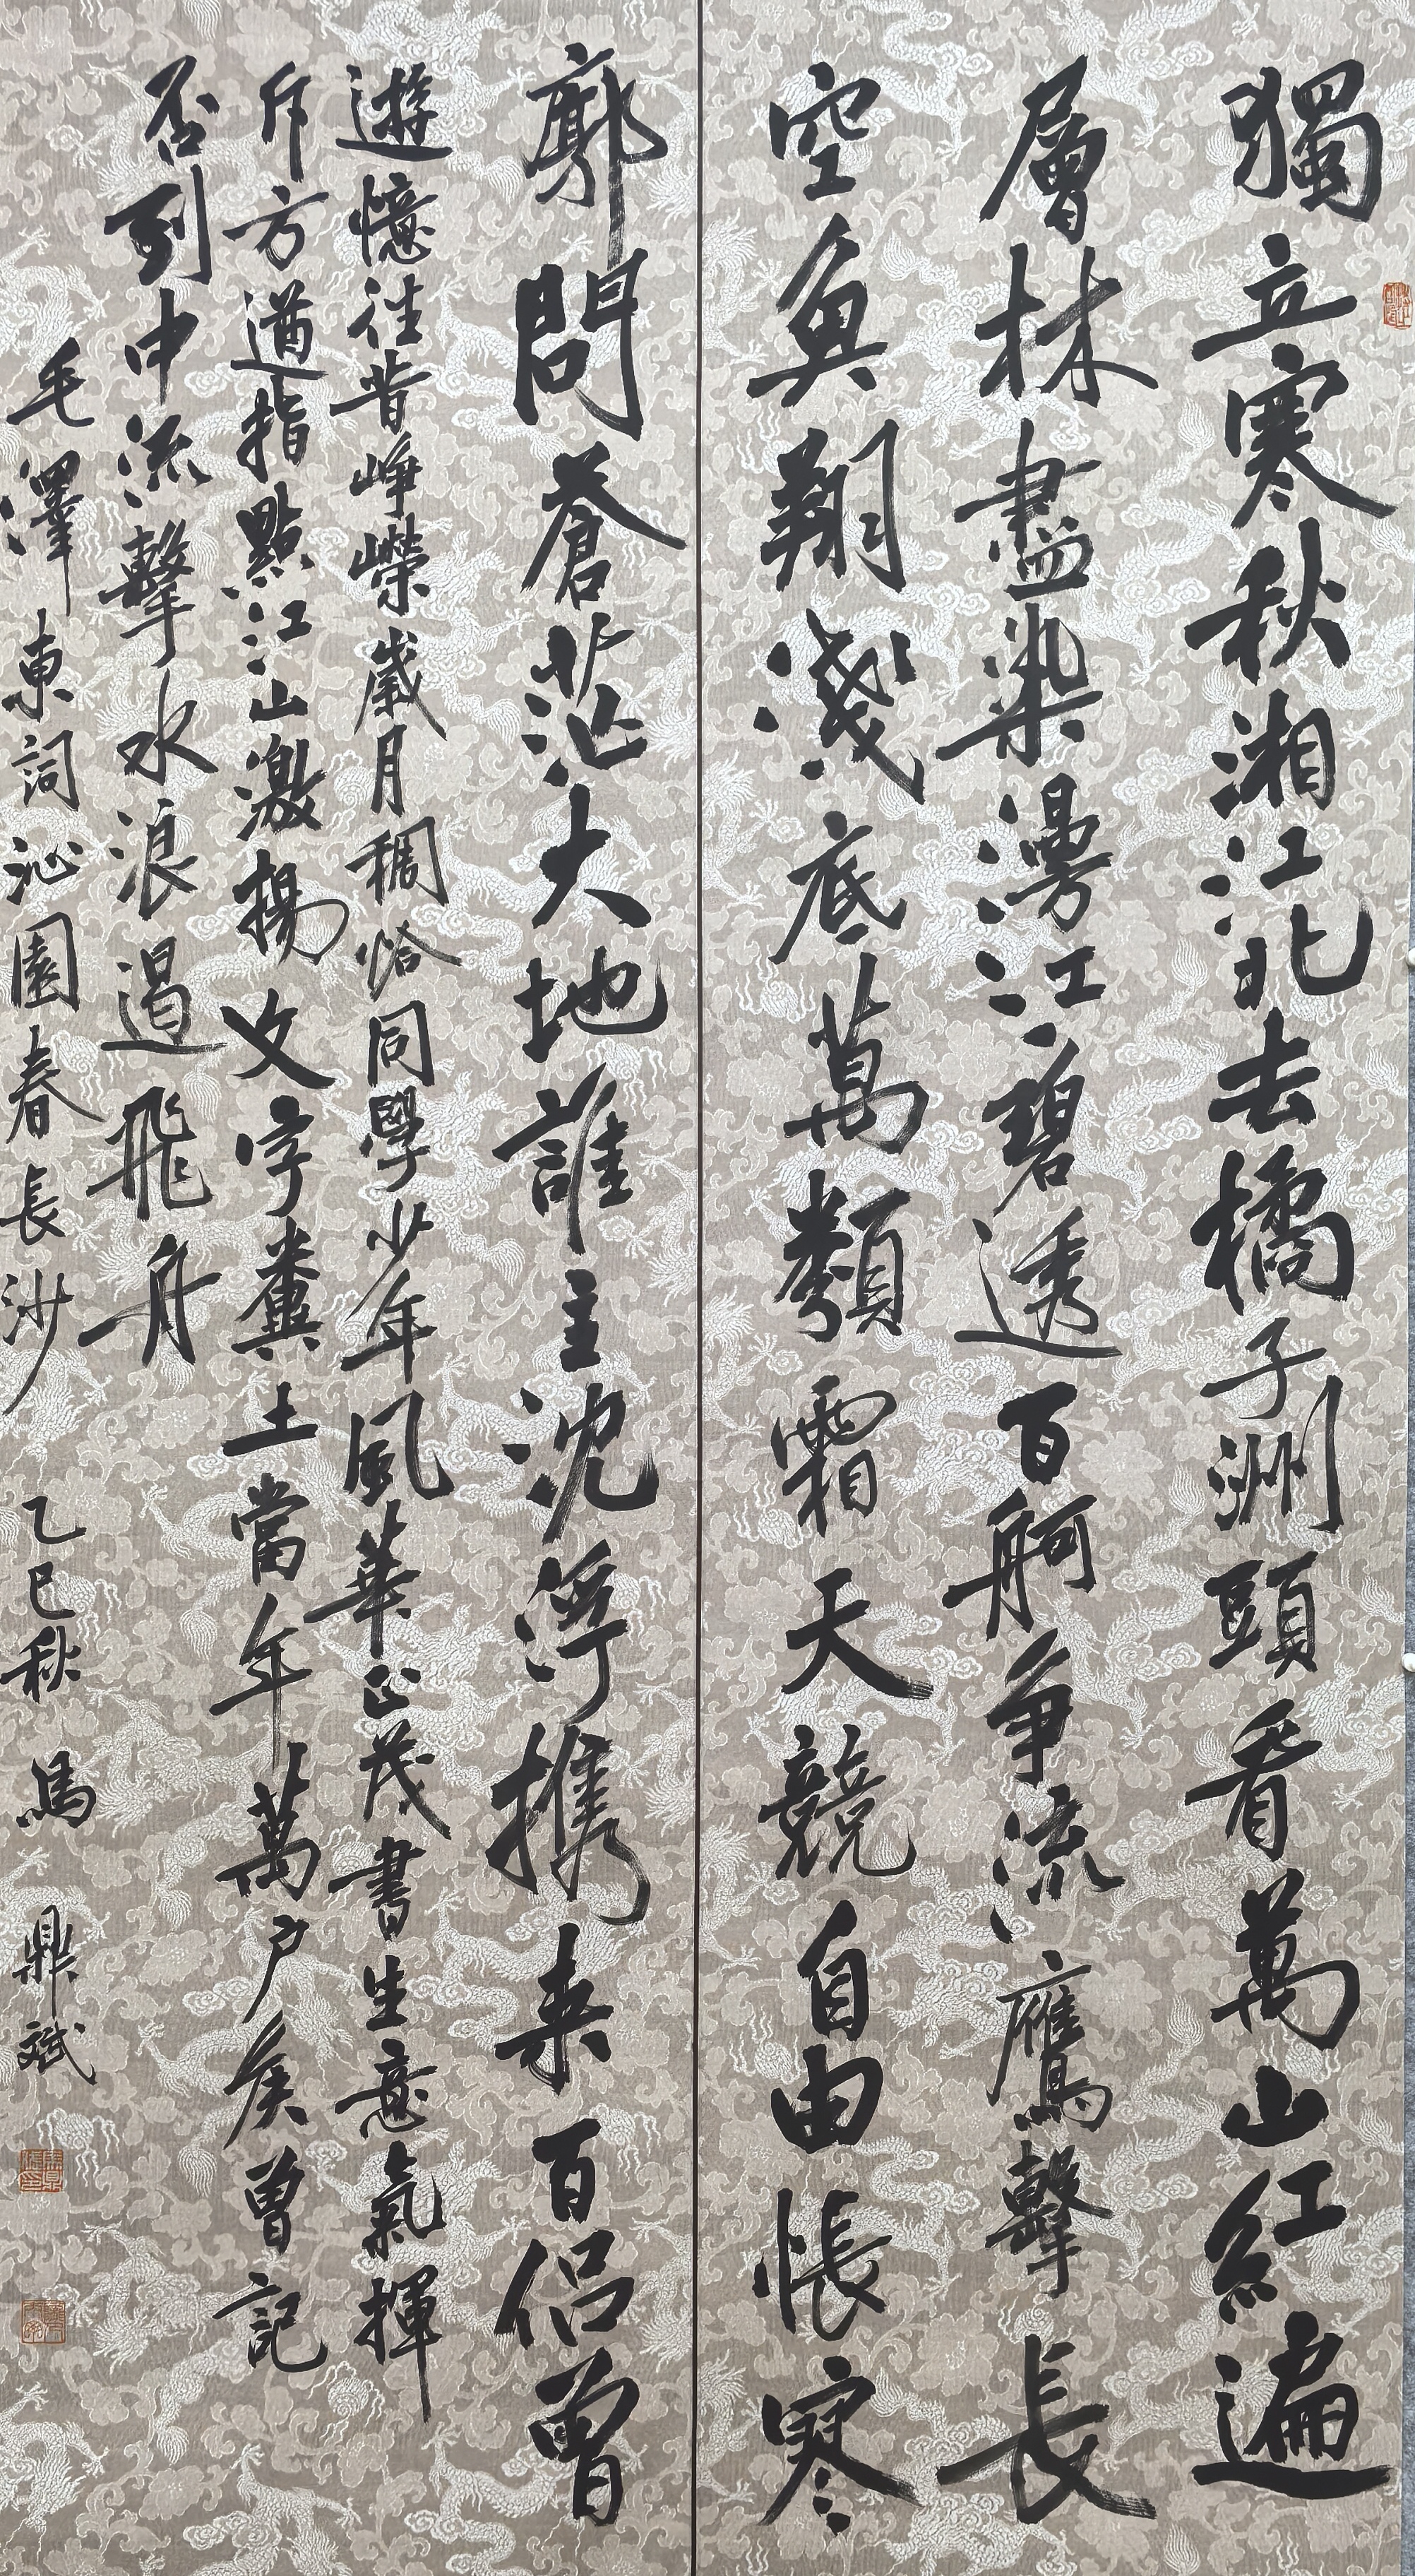 獨立寒秋湘江北去橘子洲頭看萬山紅遍
層林盡染漫江碧透百舸争流鷹擊長
空魚翔淺底萬類霜天競自由悵寒
廓問蒼茫大地誰主沈浮携来百侣曾
遊憶往昔崢嶸歲月稠恰同學少年風華正茂書生意氣揮
斥方遒指點江山激揚文字糞土當年萬户侯曾記
否到中流擊水浪遏飛舟
毛澤東詞沁園春長沙 乙巳秋 馬鼎斌